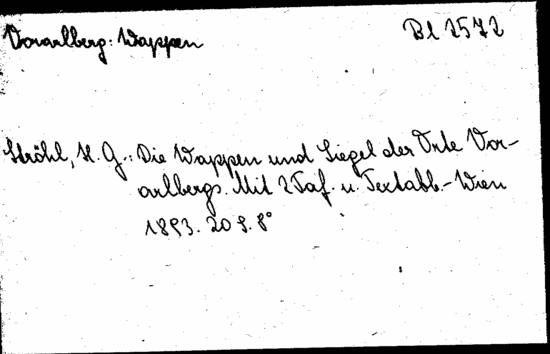 Vorarlberg: Wappen
Bl 2572
Ströhl, H. G.: Die Wappen und Siegel der Orte Vor-
arlbergs. Mit 2 Taf. u. Textabb.- Wien
1893. 20 S. 8°